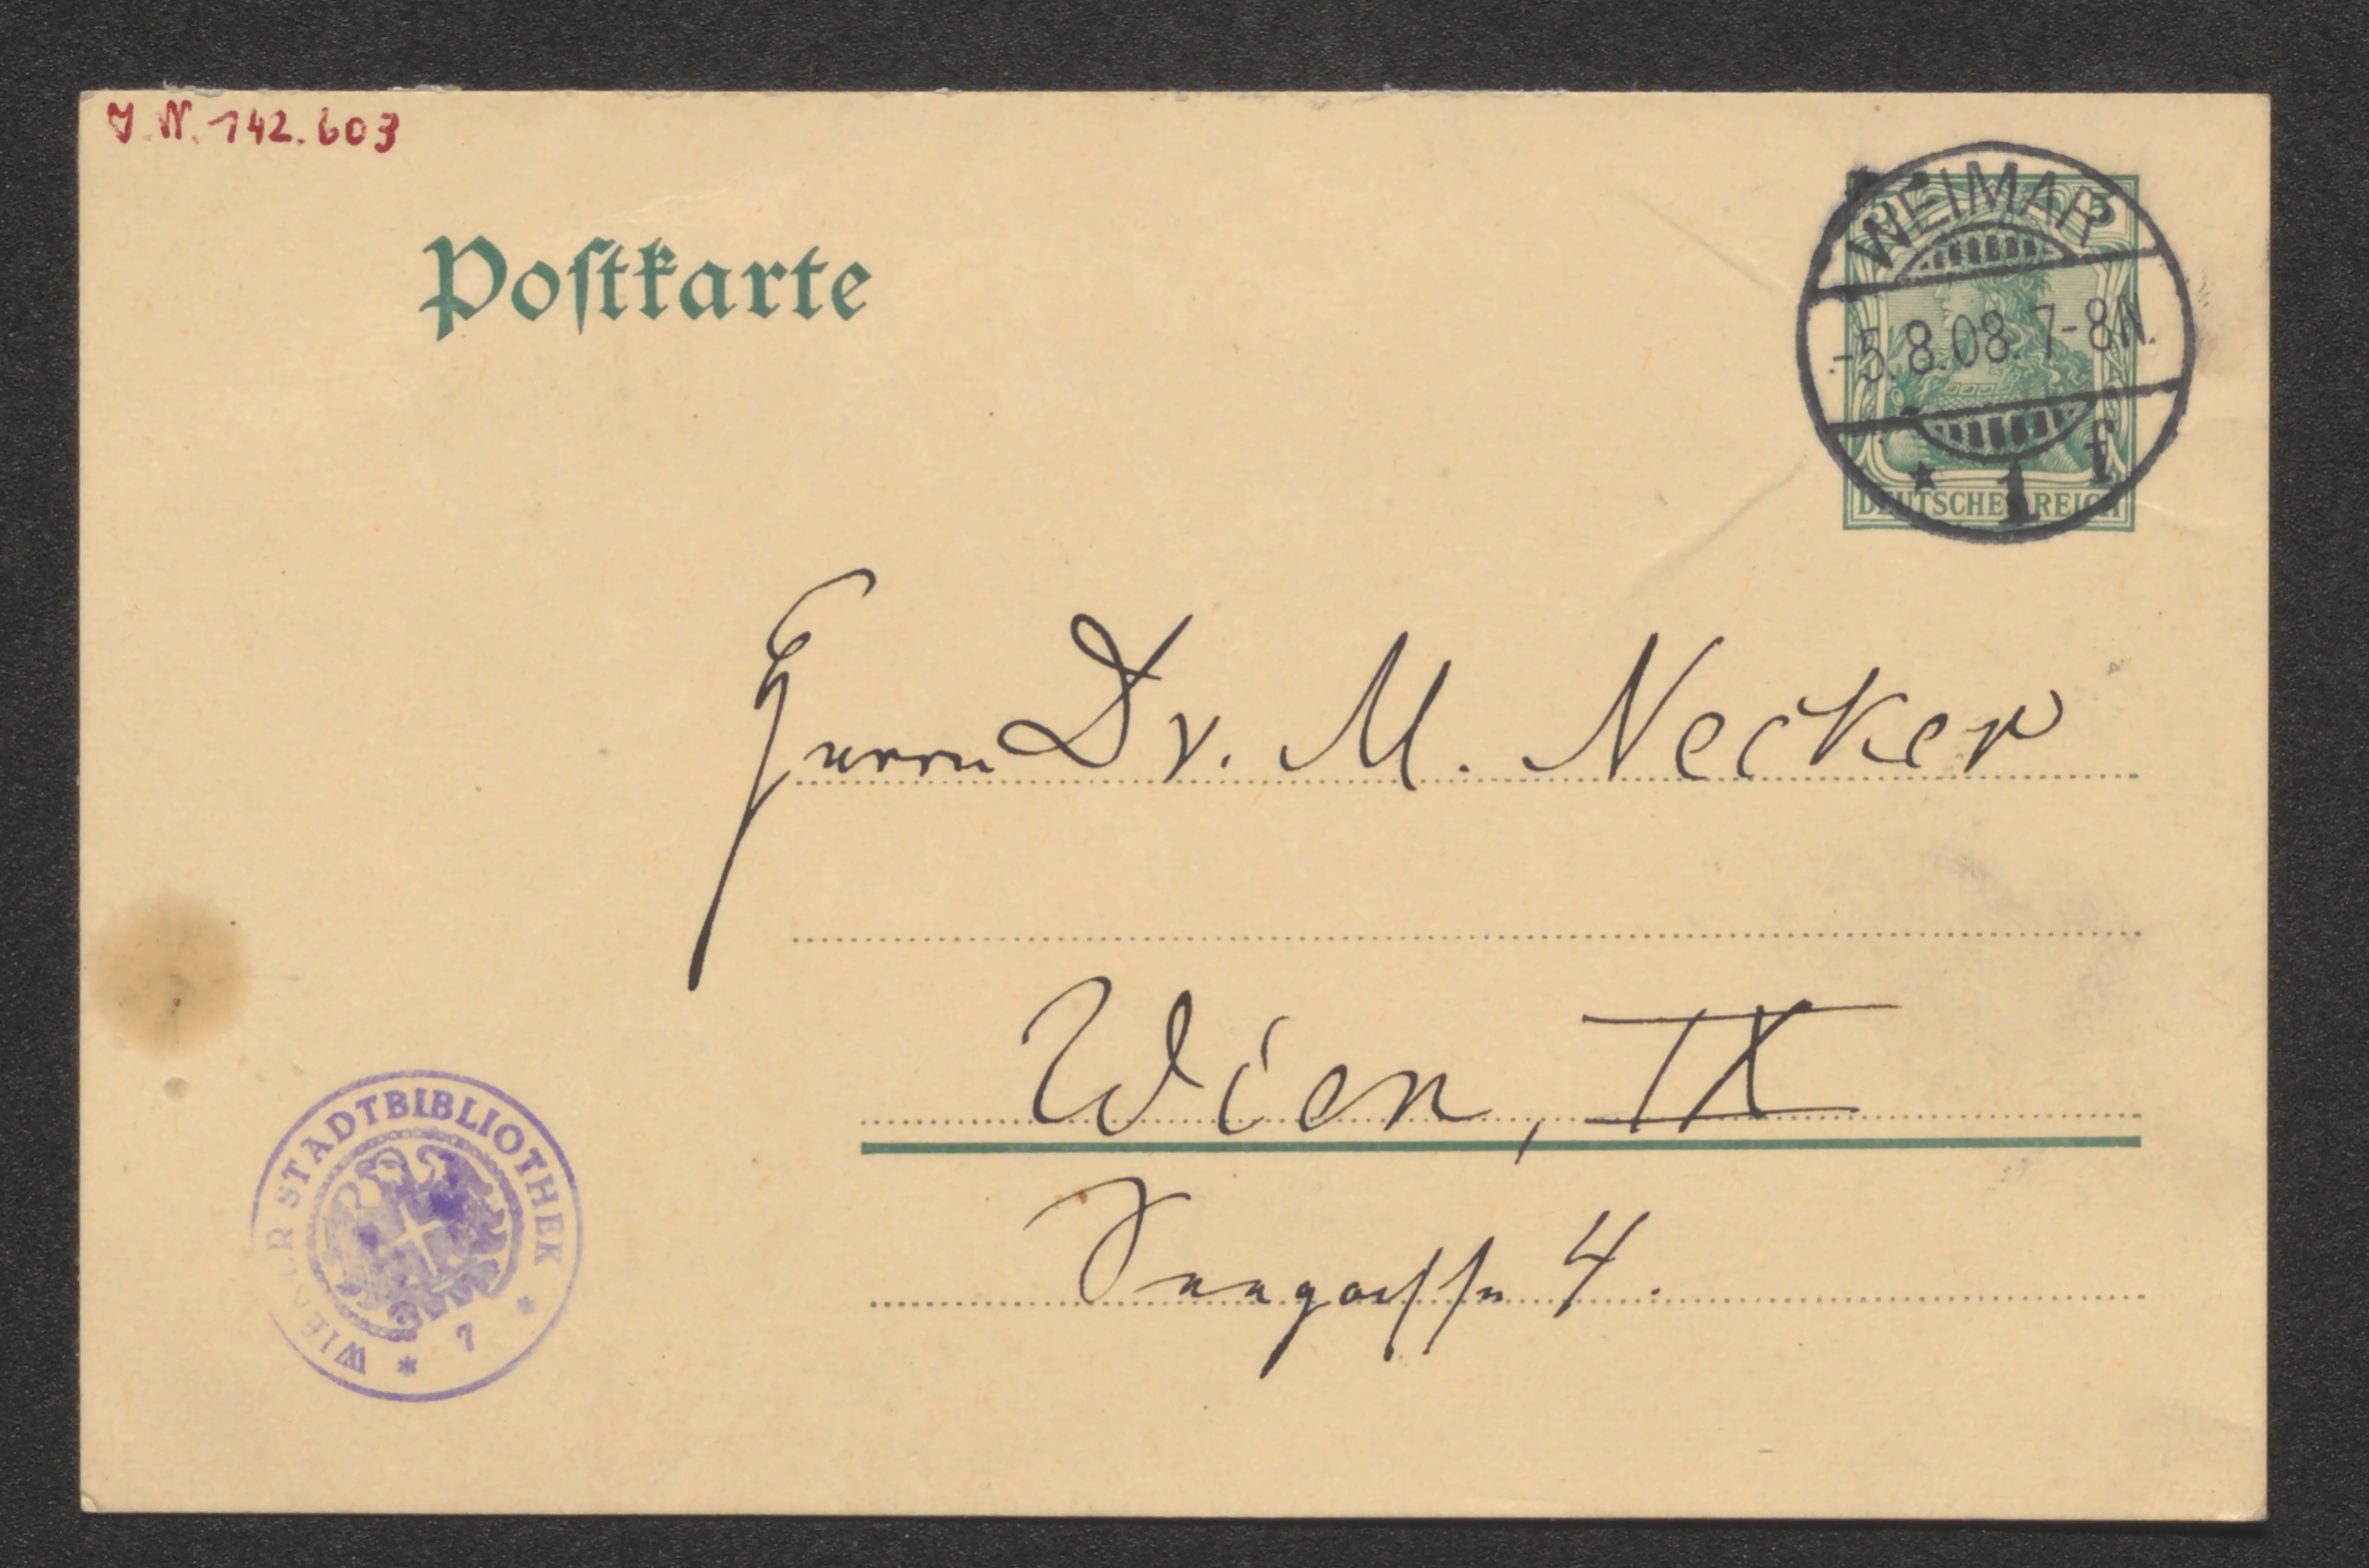 J.N. 142.603
Postkarte
WEIMAR
-5.8.08.7-8N.
* 1 f
DEUTSCHES REICH
Herrn Dr. M. Necker
Wien, IX
Seegasse 4.
WIENER STADTBIBLIOTHEK